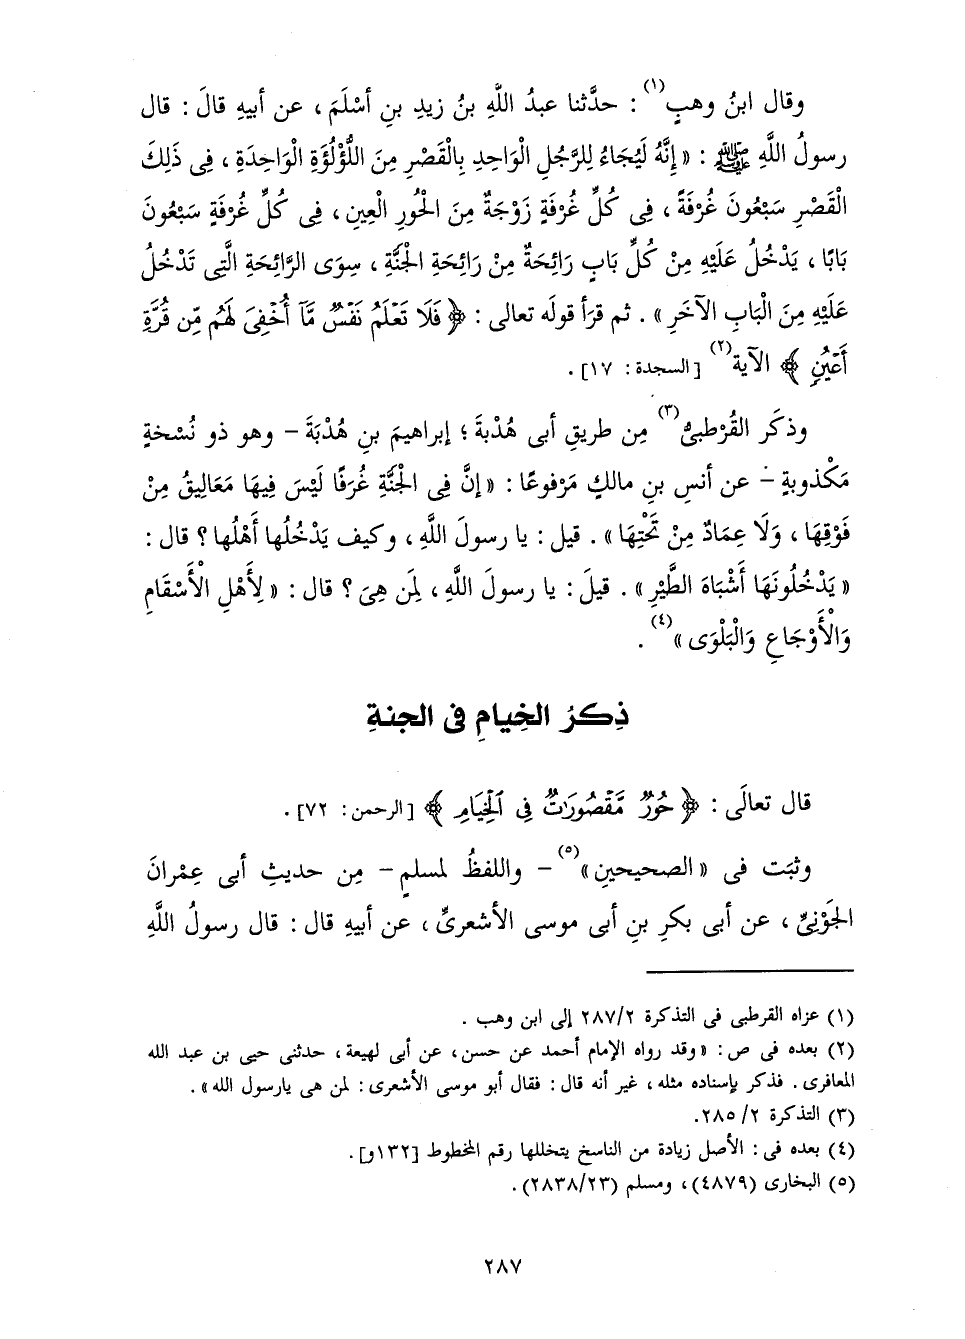 وقال ابنُ وهبٍ(١) : حدَّثنا عبدُ اللَّهِ بنُ زيدِ بنِ أسْلَمَ ، عن أبيهِ قالَ : قال
رسولُ اللَّهِ ﷺ : « إِنَّهُ لَيُجَاءُ لِلرَّجُلِ الْوَاحِدِ بِالْقَصْرِ مِنَ اللُّؤْلُؤَةِ الْوَاحِدَةِ ، فِى ذَلِكَ
الْقَصْرِ سَبْعُونَ غُرْفَةً ، فِى كُلِّ غُرْفَةٍ زَوْجَةٌ مِنَ الْحُورِ الْعِينِ ، فِى كُلِّ غُرْفَةٍ سَبْعُونَ
بَابًا ، يَدْخُلُ عَلَيْهِ مِنْ كُلِّ بَابٍ رَائِحَةٌ مِنْ رَائِحَةِ الْجَنَّةِ ، سِوَى الرَّائِحَةِ الَّتِى تَدْخُلُ
عَلَيْهِ مِنَ الْبَابِ الآخَرِ » . ثم قرَأ قولَه تعالى : ﴿ فَلَا تَعْلَمُ نَفْسٌ مَّآ أُخْفِىَ لَهُم مِّن قُرَّةِ
أَعْيُنٍ ﴾ الآية(٢) [السجدة : ١٧] .
وذكَر القُرْطبىُّ(٣) مِن طريقِ أبى هُدْبةَ ؛ إبراهيمَ بنِ هُدْبَةَ – وهو ذو نُسْخةٍ
مَكْذوبةٍ – عن أنسِ بنِ مالكٍ مَرْفوعًا : « إِنَّ فِى الْجَنَّةِ غُرَفًا لَيْسَ فِيهَا مَعَالِيقُ مِنْ
فَوْقِهَا ، وَلَا عِمَادٌ مِنْ تَحْتِهَا » . قيل : يا رسولَ اللَّهِ ، وكيف يَدْخُلُها أَهْلُها ؟ قال :
« يَدْخُلُونَهَا أَشْبَاهَ الطَّيْرِ » . قيلَ : يا رسولَ اللَّهِ ، لِمَن هِىَ ؟ قال : « لِأَهْلِ الْأَسْقَامِ
وَالْأَوْجَاعِ وَالْبَلْوَى »(٤) .
ذِكرُ الخِيامِ فى الجنةِ
قال تعالَى : ﴿ حُورٌ مَّقْصُورَٰتٌ فِى ٱلْخِيَامِ ﴾ [الرحمن : ٧٢] .
وثبَت فى « الصحيحينِ »(٥) – واللفظُ لمسلمٍ – مِن حديثِ أبى عِمْرانَ
الجَوْنِىِّ ، عن أبى بكرِ بنِ أبى موسى الأشعرىِّ ، عن أبيهِ قال : قال رسولُ اللَّهِ
(١) عزاه القرطبى فى التذكرة ٢٨٧/٢ إلى ابن وهب .
(٢) بعده فى ص : « وقد رواه الإمام أحمد عن حسن ، عن أبى لهيعة ، حدثنى حيى بن عبد الله
المعافرى . فذكر بإسناده مثله ، غير أنه قال : فقال أبو موسى الأشعرى : لمن هى يارسول الله » .
(٣) التذكرة ٢٨٥/٢.
(٤) بعده فى : الأصل زيادة من الناسخ يتخللها رقم المخطوط [١٣٢و] .
(٥) البخارى (٤٨٧٩) ، ومسلم (٢٨٣٨/٢٣) .
٢٨٧